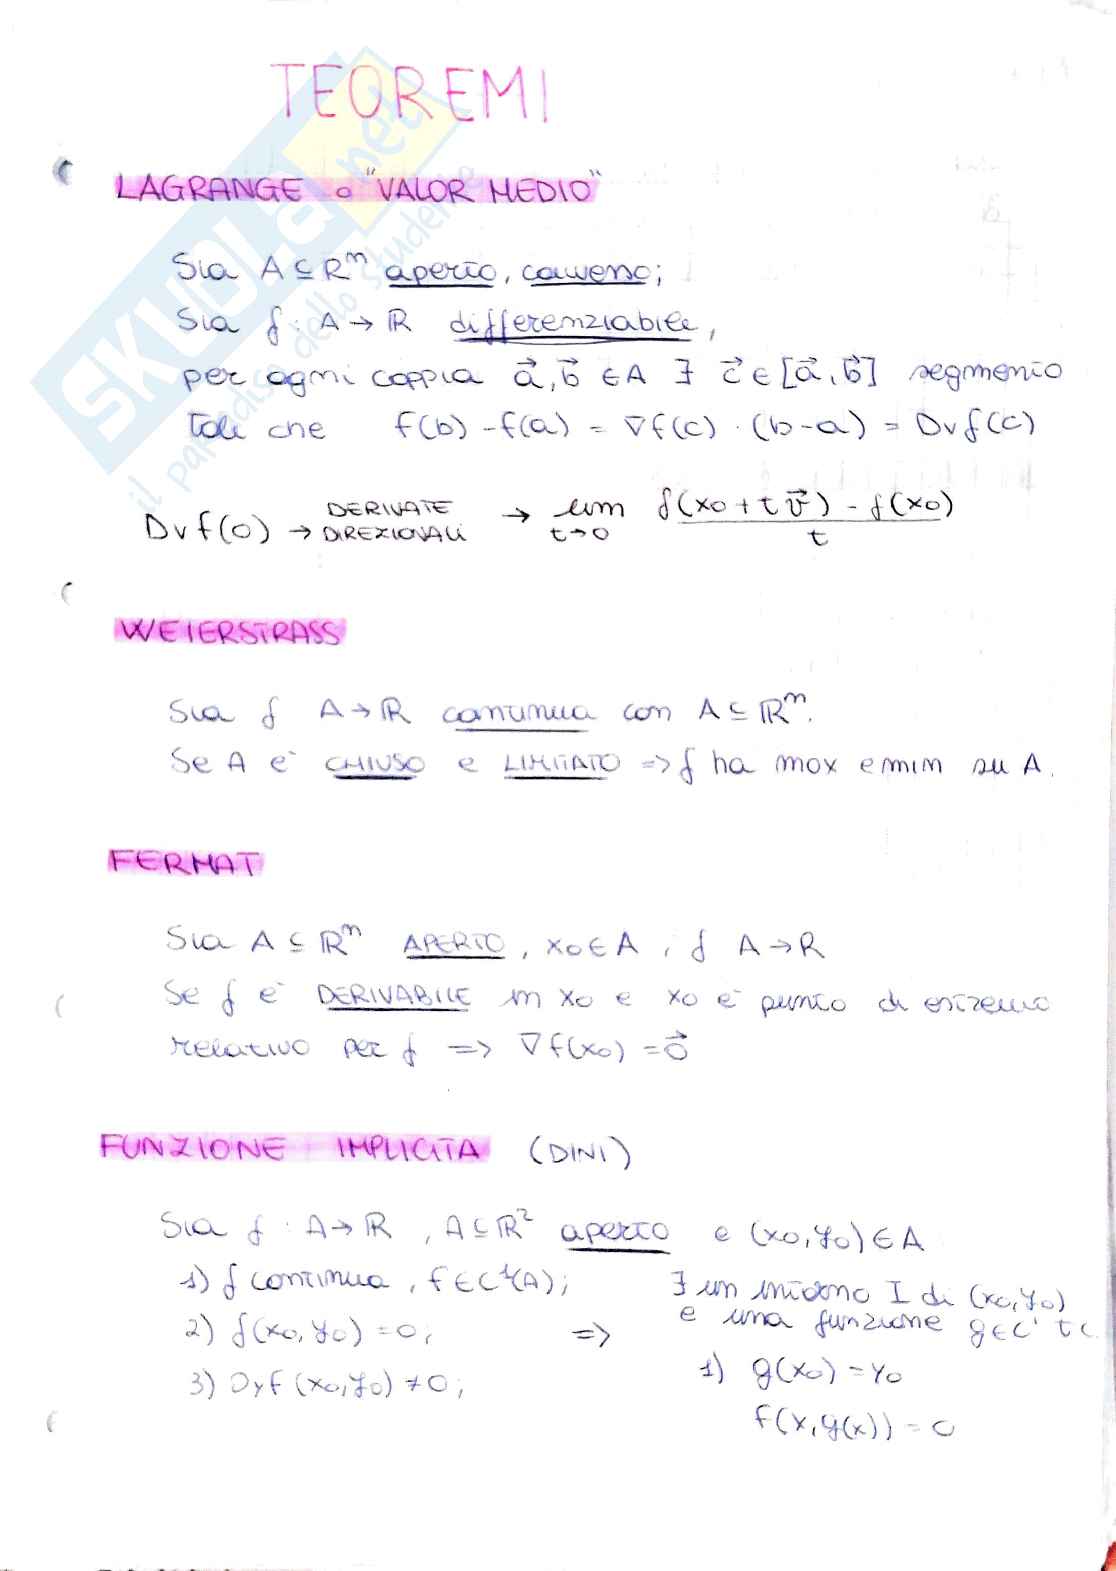 TEOREMI
LAGRANGE o "VALOR MEDIO"
Sia A ⊆ ℝⁿ aperto, convesso;
Sia f: A → ℝ differenziabile,
per ogni coppia a⃗, b⃗ ∈ A ∃ c⃗ ∈ [a⃗, b⃗] segmento
tale che f(b) - f(a) = ∇f(c) · (b-a) = Dv f(c)
Dv f(0) → DERIVATE DIREZIONALI → lim t→0 f(x0 + t v⃗) - f(x0) / t
WEIERSTRASS
Sia f A → ℝ continua con A ⊆ ℝⁿ.
Se A è CHIUSO e LIMITATO => f ha max e min su A.
FERMAT
Sia A ⊆ ℝⁿ APERTO, x0 ∈ A, f A → R
Se f è DERIVABILE in x0 e x0 è punto di estremo
relativo per f => ∇f(x0) = 0⃗
FUNZIONE IMPLICITA (DINI)
Sia f: A → ℝ, A ⊆ ℝ² aperto e (x0, y0) ∈ A
1) f continua, f ∈ C¹(A);
2) f(x0, y0) = 0;
3) Dyf (x0, y0) ≠ 0;
=>
∃ un intorno I di (x0, y0)
e una funzione g ∈ C¹ t.c.
1) g(x0) = y0
f(x, g(x)) = 0
SKUOLA.net
il paradiso dello studente